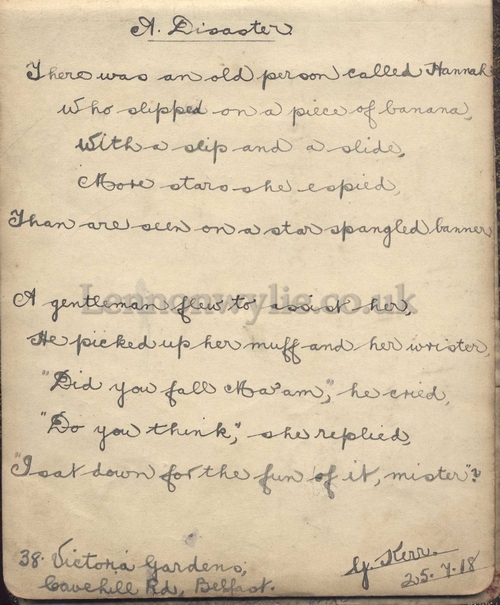 A. Disaster.
There was an old person called Hannah
Who slipped on a piece of banana,
With a slip and a slide,
More stars she espied,
Than are seen on a star spangled banner
Lennonwylie.co.uk
A gentleman flew to assist her,
He picked up her muff and her wrister,
"Did you fall Ma'am," he cried,
"Do you think," she replied,
"I sat down for the fun of it, mister"?
38. Victoria Gardens,
Cavehill Rd, Belfast.
G. Kerr.
25.7.18